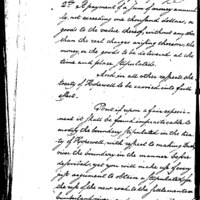 2d A payment of a sum of money annually
not exceeding one thousand dollars, or
goods to the value thereof, without any other
than the real charges arising thereon; the
money, or the goods to be delivered at the
time and place stipulated.
And in all other respects the
treaty of Hopewell to be carried into full
effect.
But if upon a fair experiment
it shall be found impracticable to
modify the boundary stipulated in the treaty
of Hopewell, with respect to making the
river the boundary in the manner before
described, yet you will make use of every
argument to obtain a stipulation for
the use of the new road to the settlements on
Cumberland river